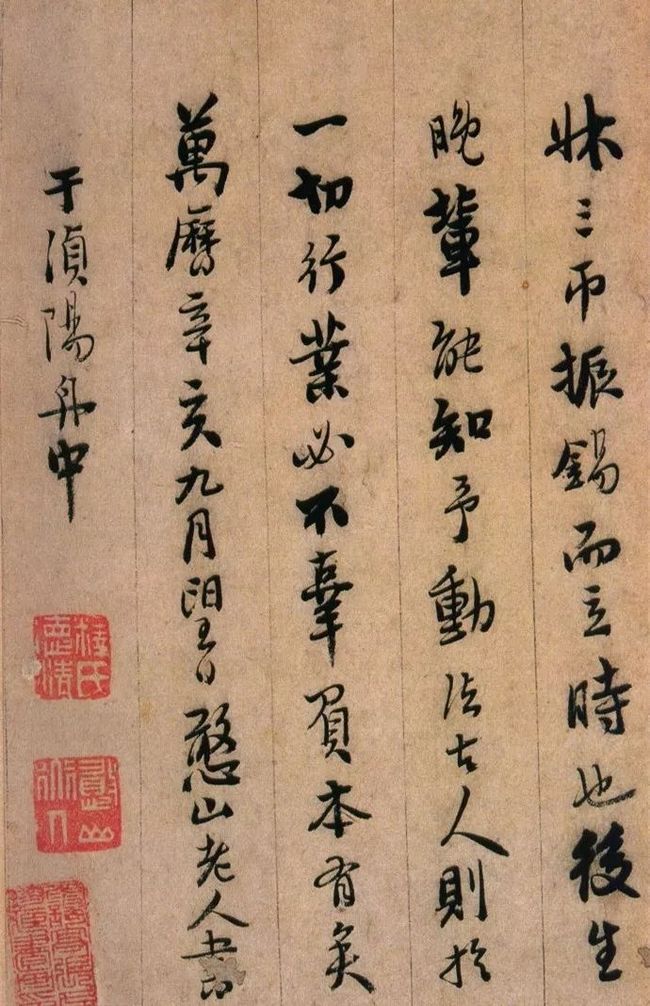 牀三帀振錫而立時也後生
晚輩能知予動法古人則於
一切行業必不辜負本有矣
萬曆辛亥九月望日憨山老人書
于湞陽舟中
氏德清
憨山